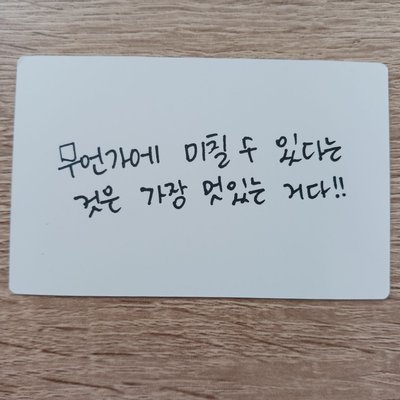 무언가에 미칠 수 있다는
것은 가장 멋있는 거다!!